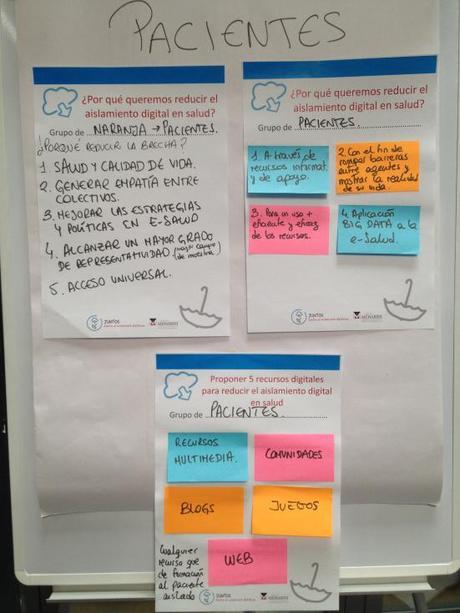 PACIENTES
¿Por qué queremos reducir el
aislamiento digital en salud?
Grupo de NARANJA → PACIENTES.
¿PORQUÉ REDUCIR LA BRECHA?
1. SALUD Y CALIDAD DE VIDA.
2. GENERAR EMPATÍA ENTRE
COLECTIVOS.
3. MEJORAR LAS ESTRATEGIAS
Y POLÍTICAS EN E-SALUD
4. ALCANZAR UN MAYOR GRADO
DE REPRESENTATIVIDAD
de muestra)
5. ACCESO UNIVERSAL.
JUNTOS
¿Por qué queremos reducir el
aislamiento digital en salud?
Grupo de PACIENTES.
1. A través de
recursos informat.
y de apoyo.
2. Con el fin de
romper barreras
entre agentes y
mostrar la realidad
de su vida.
3. Para un uso +
eficiente y eficaz
de los recursos.
4. Aplicación
BIG DATA a la
e-Salud.
JUNTOS
MENARINI
Proponer 5 recursos digitales
para reducir el aislamiento digital
en salud
Grupo de PACIENTES.
RECURSOS
MULTIMEDIA.
COMUNIDADES
BLOGS
JUEGOS
Cualquier
recurso que
de formación
al paciente
aislado
WEB
JUNTOS